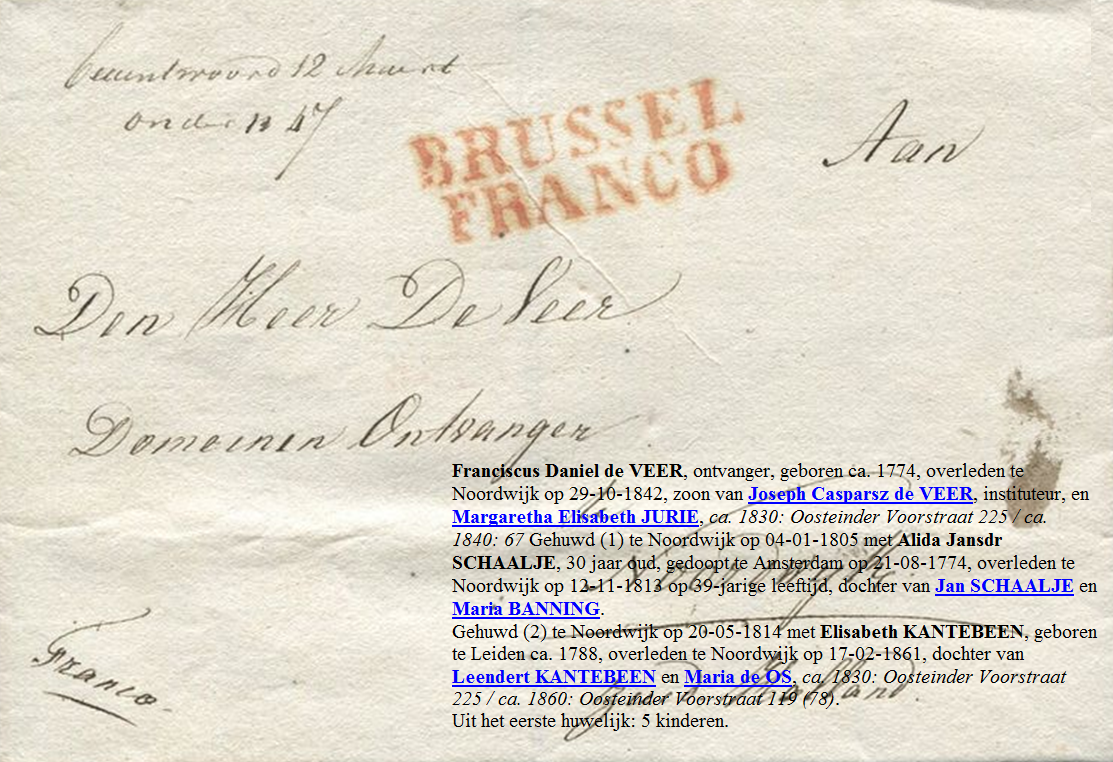 beantwoord 12 Maart
onder n 47
BRUSSEL
FRANCO
Aan
Den Heer De Veer
Domeinen Ontvanger
te
Noordwijk
Zuid Holland.
Franco
Franciscus Daniel de VEER, ontvanger, geboren ca. 1774, overleden te
Noordwijk op 29-10-1842, zoon van Joseph Casparsz de VEER, instituteur, en
Margaretha Elisabeth JURIE, ca. 1830: Oosteinder Voorstraat 225 / ca.
1840: 67 Gehuwd (1) te Noordwijk op 04-01-1805 met Alida Jansdr
SCHAALJE, 30 jaar oud, gedoopt te Amsterdam op 21-08-1774, overleden te
Noordwijk op 12-11-1813 op 39-jarige leeftijd, dochter van Jan SCHAALJE en
Maria BANNING.
Gehuwd (2) te Noordwijk op 20-05-1814 met Elisabeth KANTEBEEN, geboren
te Leiden ca. 1788, overleden te Noordwijk op 17-02-1861, dochter van
Leendert KANTEBEEN en Maria de OS, ca. 1830: Oosteinder Voorstraat
225 / ca. 1860: Oosteinder Voorstraat 119 (78).
Uit het eerste huwelijk: 5 kinderen.